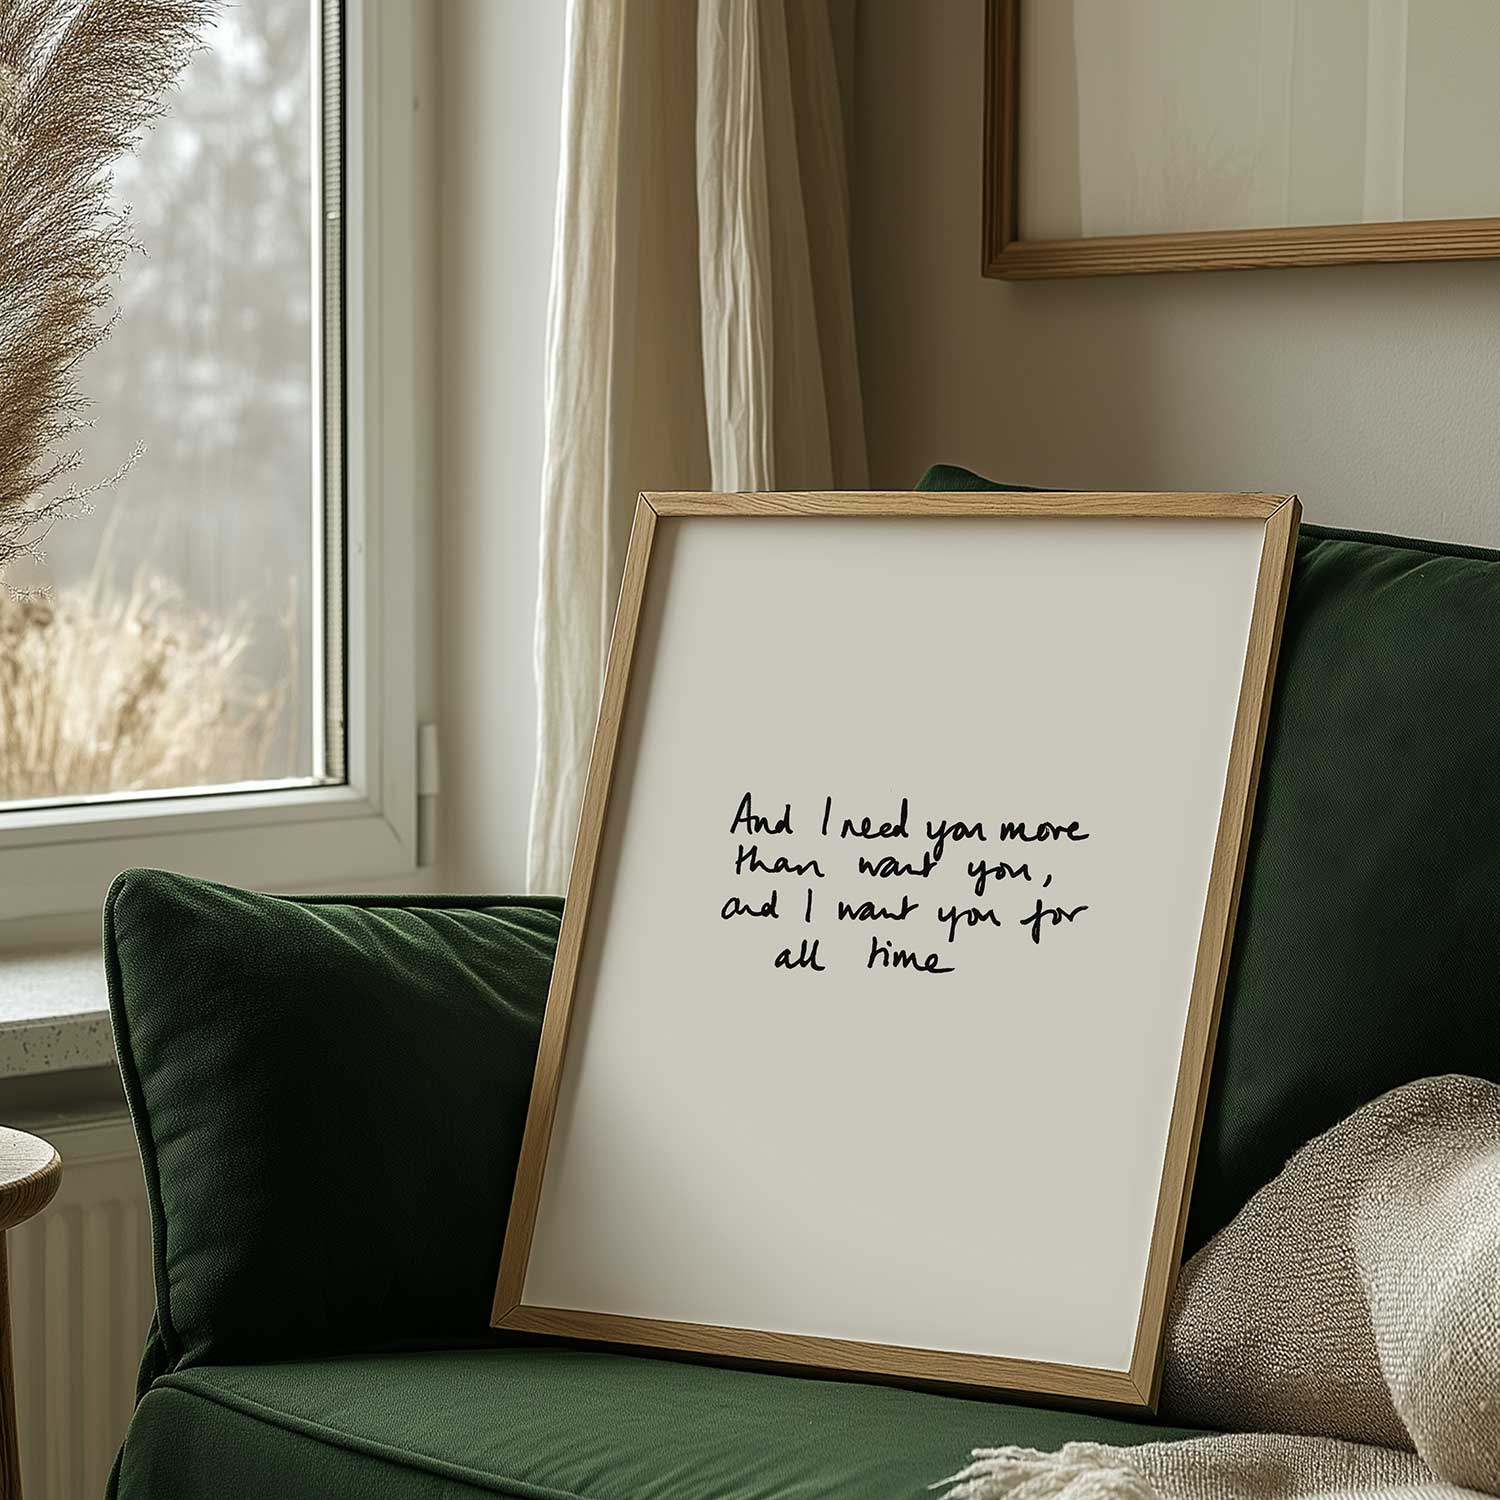 And I need you more
than want you,
and I want you for
all time